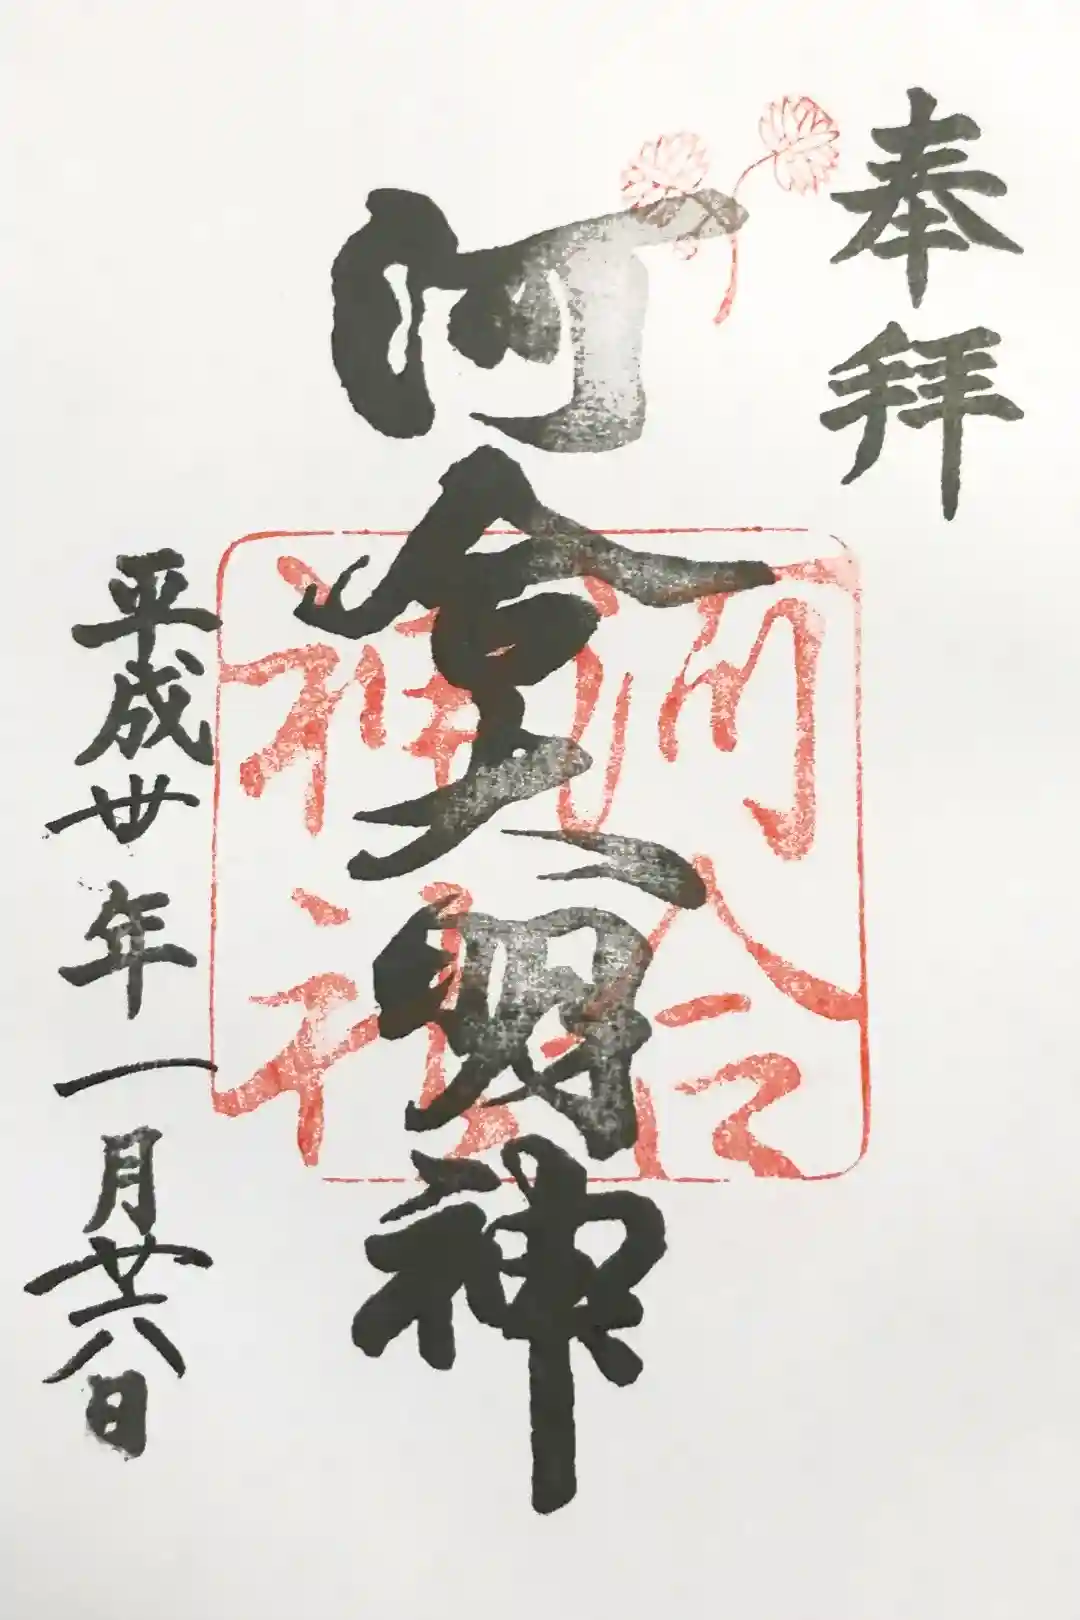 奉拝
河合大明神
河合
神社
平成卅年一月廿八日